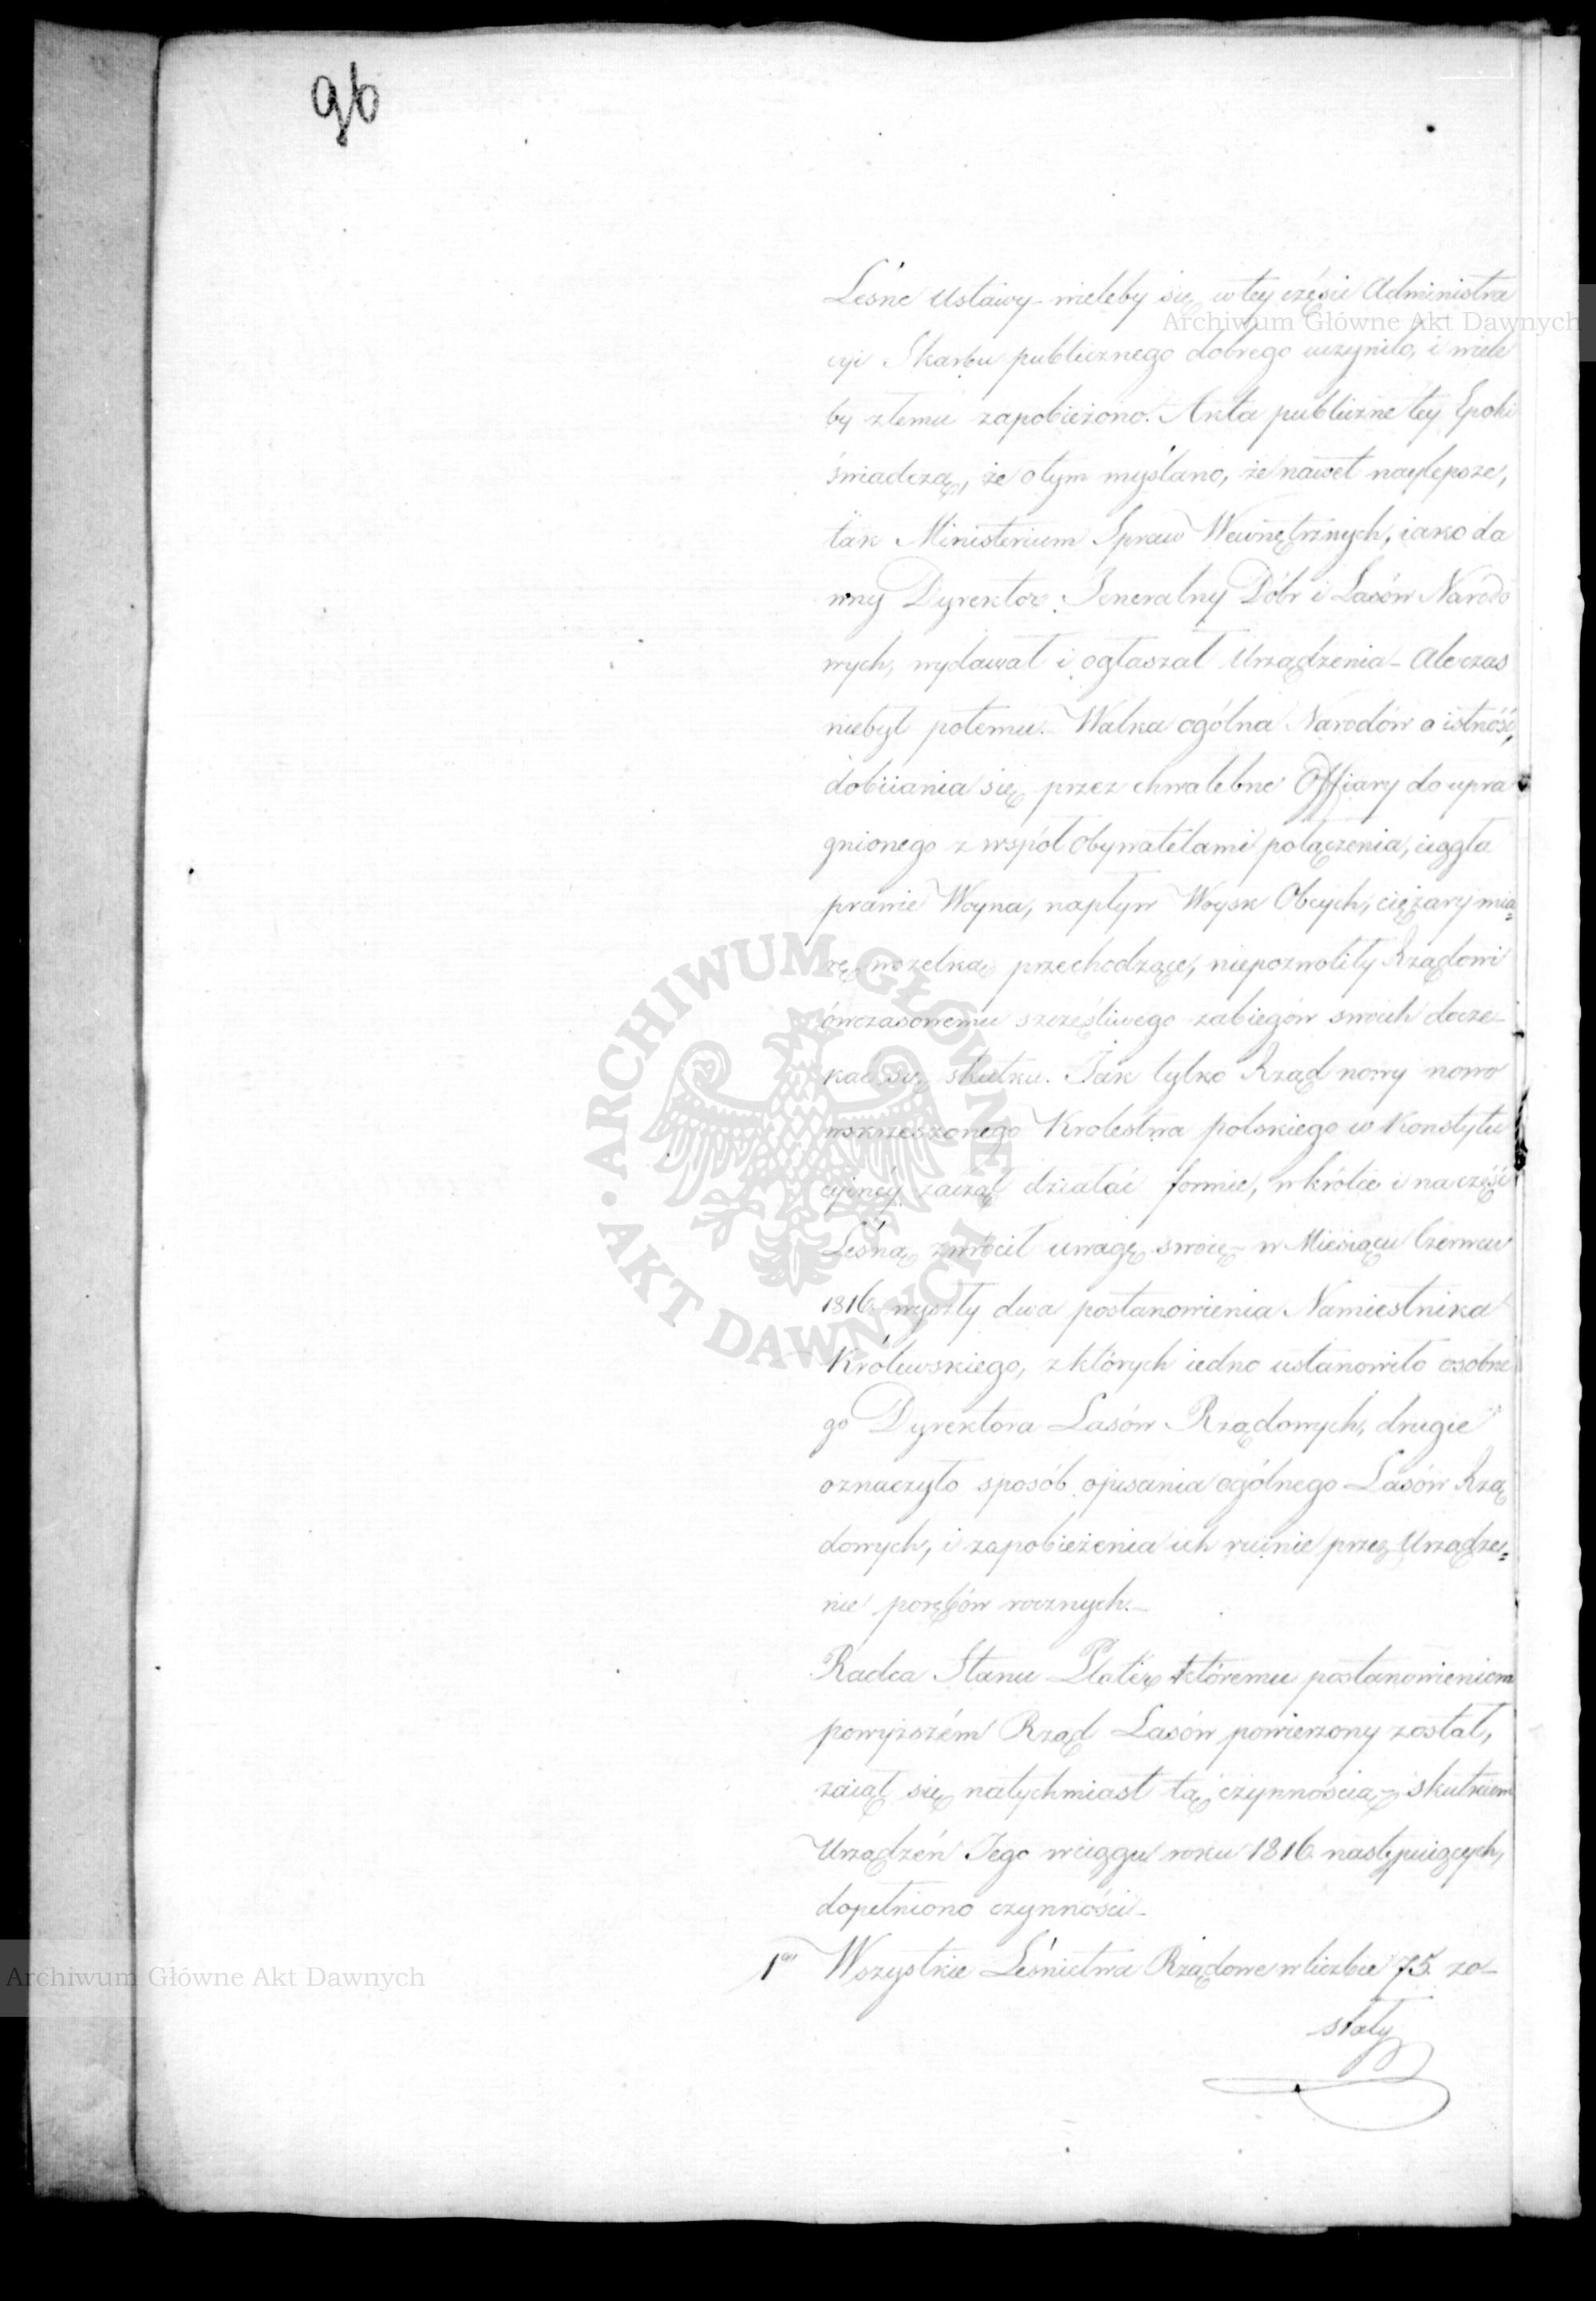 96
Leśne Ustawy – wieleby się w tey części Administra
cyi Skarbu publicznego dobrego uczyniło, i wiele
by złemu zapobieżono. Akta publiczne tey Epoki
świadczą, że o tym myślano, że nawet naylepsze,
tak Ministerium Spraw Wewnętrznych, iako da
wny Dyrektor Jeneralny Dóbr i Lasów Narodo
wych, wydawał i ogłaszał Urządzenia – Ale czas
niebył potemu. Walka ogólna Narodów o istność,
dobiiania się przez chwalebne Offiary do upra
gnionego z współ Obywatelami połączenia, ciągła
prawie Woyna, napływ Woysk Obcych, ciężary mia=
rę wszelką przechodzące, niepozwoliły Rządowi
ówczasowemu szczęśliwego zabiegów swoich docze–
kać się skutku. Jak tylko Rząd nowy nowo
wskrzeszonego Krolestwa polskiego w Konstytu
cyinéy zaczął działać formie, wkrótce i na część
Leśną zwrócił uwagę swoię – w Miesiącu Czerwcu
1816. wyszły dwa postanowienia Namiestnika
Królewskiego, z których iedno ustanowiło osobne
go Dyrektora Lasów Rządowych, drugie
oznaczyło sposób opisania ogólnego Lasów Rzą
dowych, i zapobieżenia ich ruinie przez Urządze=
nie porębów rocznych. –
Radca Stanu Plater któremu postanowieniem
powyższém Rząd Lasów powierzony został,
zaiął się natychmiast tą czynnością – i skutkiem
Urządzeń Jego w ciągu roku 1816. następuiących,
dopełniono czynności –
1mo Wszystkie Leśnictwa Rządowe w liczbie 75. zo–
stały
Archiwum Główne Akt Dawnych
ARCHIWUM GŁÓWNE AKT DAWNYCH
Archiwum Główne Akt Dawnych